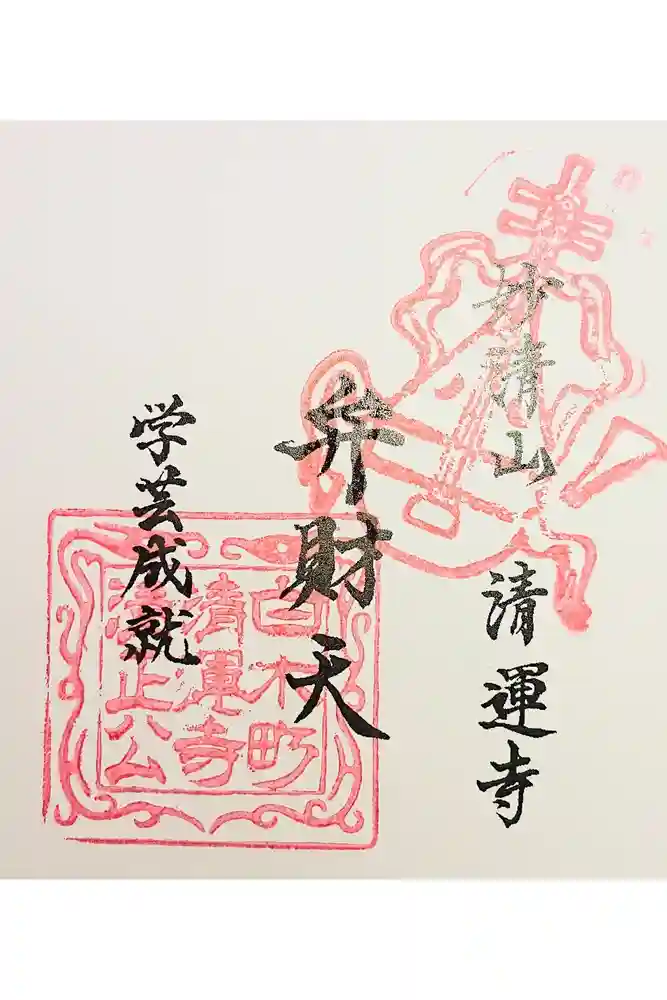 妙清山
清運寺
弁財天
学芸成就
白木町
清運寺
清正公